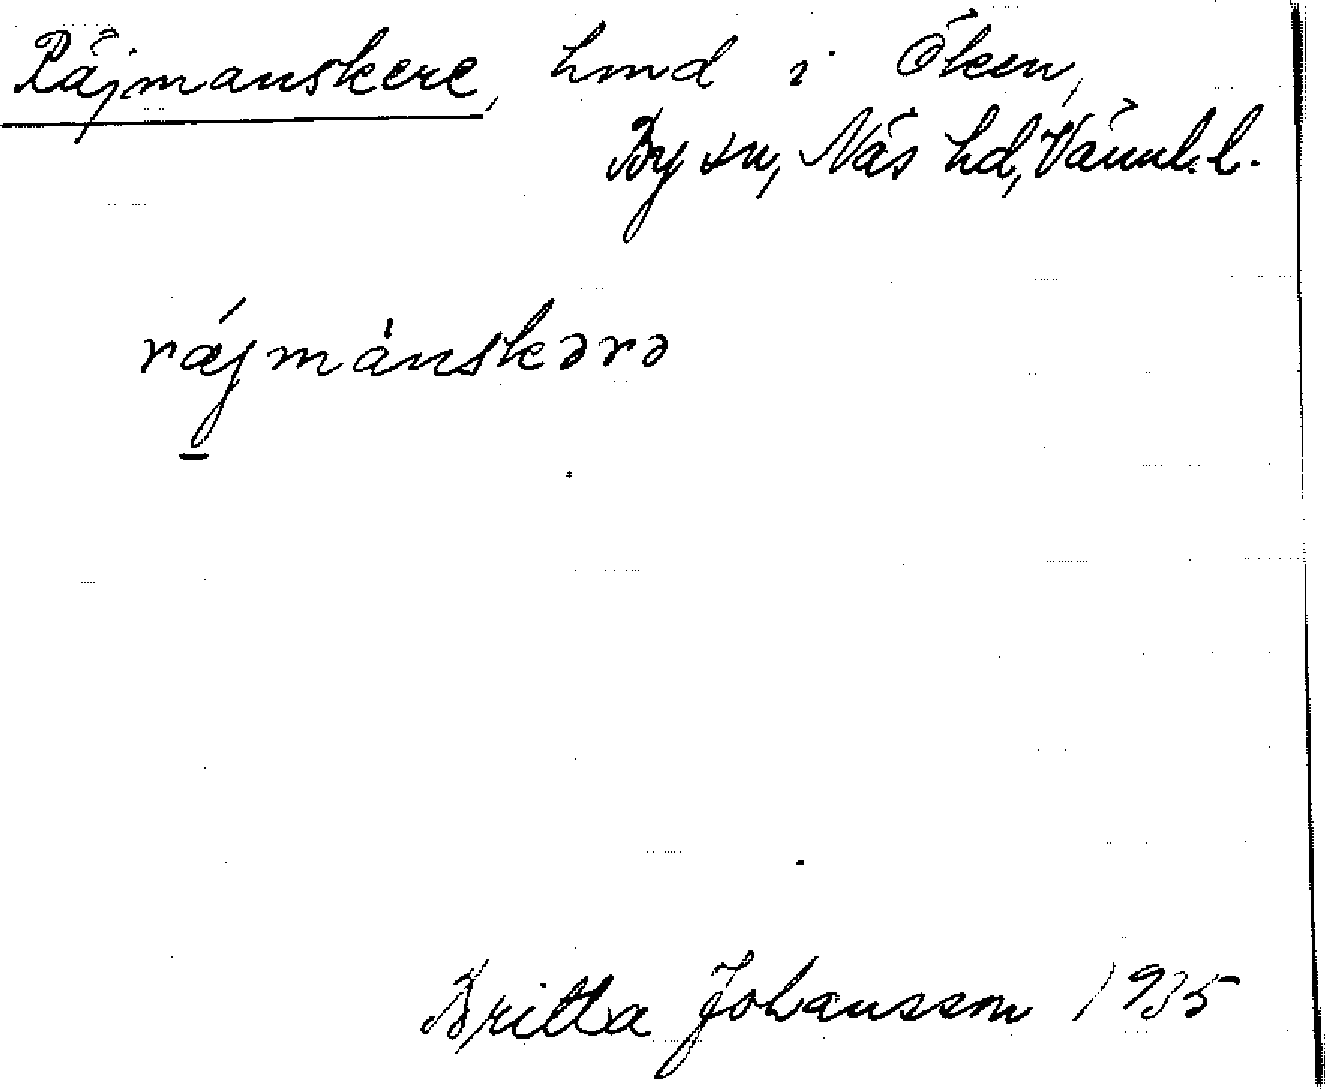 Räjmanskere, hmd i Öken,
By sn, Näs hd, Värml. l.
ræ´jmànskərə
Britta Johansson 1935